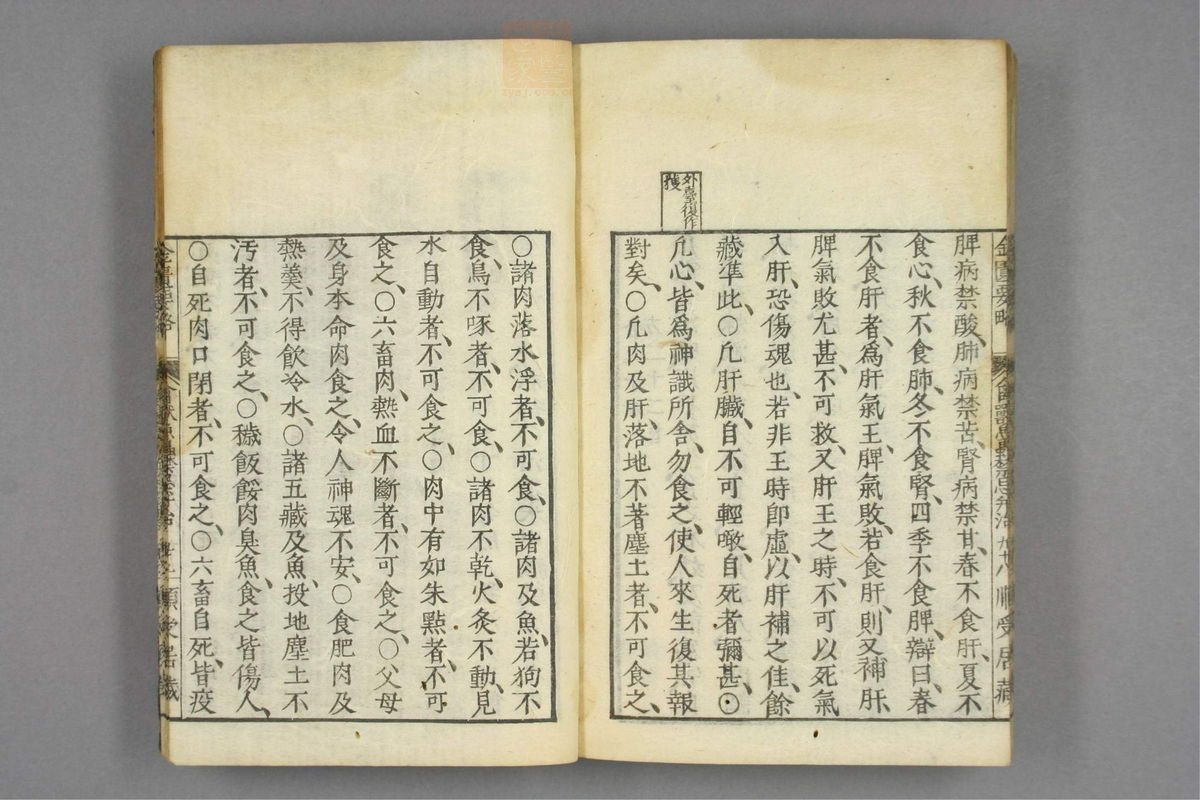 脾病禁酸、肺病禁苦、腎病禁甘、春不食肝、夏不
食心、秋不食肺、冬不食腎、四季不食脾、辯曰、春
不食肝者、爲肝氣王、脾氣敗、若食肝、則又補肝、
脾氣敗尤甚、不可救、又肝王之時、不可以死氣
入肝、恐傷魂也、若非王時即虛、以肝補之佳、餘
藏準此、○凡肝臟、自不可輕噉、自死者彌甚、○
凡心、皆爲神識所舍、勿食之、使人來生復其報
對矣、○凡肉及肝、落地不著塵土者、不可食之、
外臺復作
獲
○諸肉落水浮者、不可食、○諸肉及魚、若狗不
食、鳥不啄者、不可食、○諸肉不乾、火灸不動、見
水自動者、不可食之、○肉中有如朱點者、不可
食之、○六畜肉、熱血不斷者、不可食之、○父母
及身本命肉食之、令人神魂不安、○食肥肉及
熱羹、不得飲冷水、○諸五藏及魚、投地塵土不
汚者、不可食之、○穢飯餒肉臭魚、食之皆傷人、
○自死肉口閉者、不可食之、○六畜自死、皆疫
金匱要略
順受居藏